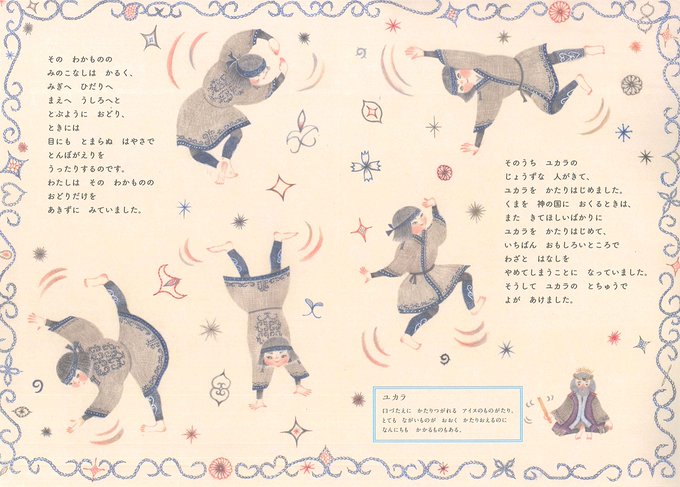 その わかものの
みのこなしは かるく、
みぎへ ひだりへ
まえへ うしろへと
とぶように おどり、
ときには
目にも とまらぬ はやさで
とんぼがえりを
うったりするのです。
わたしは その わかものの
おどりだけを
あきずに みていました。
そのうち ユカラの
じょうずな 人がきて、
ユカラを かたりはじめました。
くまを 神の国に おくるときは、
また きてほしいばかりに
ユカラを かたりはじめて、
いちばん おもしろいところで
わざと はなしを
やめてしまうことに なっていました。
そうして ユカラの とちゅうで
よが あけました。
ユカラ
口づたえに かたりつがれる アイヌのものがたり。
とても ながいものが おおく かたりおえるのに
なんにちも かかるものもある。